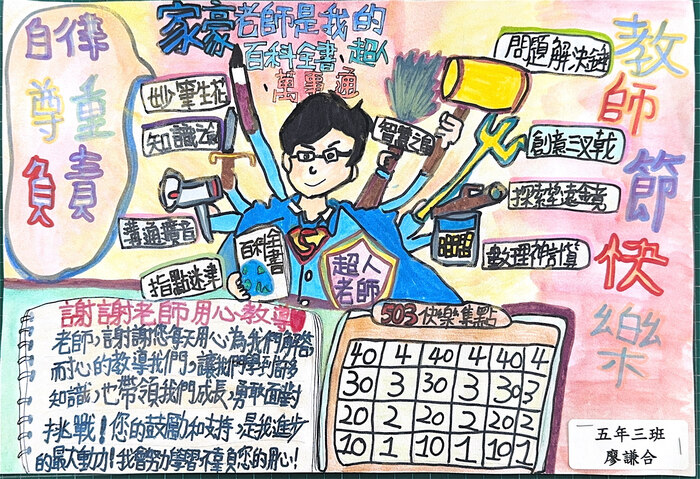 家豪老師是我的
百科全書、超人
、萬事通
自律
尊重
負責
教師節快樂
妙筆生花
知識之劍
溝通擴音
指點迷津
智慧之扇
問題解決錘
創意三叉戟
探索望遠鏡
數理神計算
百科全書
超人
老師
謝謝老師用心教導
老師,謝謝您每天用心為我們解答
耐心的教導我們,讓我們學到許多
知識,也帶領我們成長,勇敢面對
挑戰!您的鼓勵和支持,是我進步
的最大動力!我會努力學習不辜負您的用心!
503快樂集點
40 4 40 4 40 4
30 3 30 3 30 3
20 2 20 2 20 2
10 1 10 1 10 1
五年三班
廖謙合